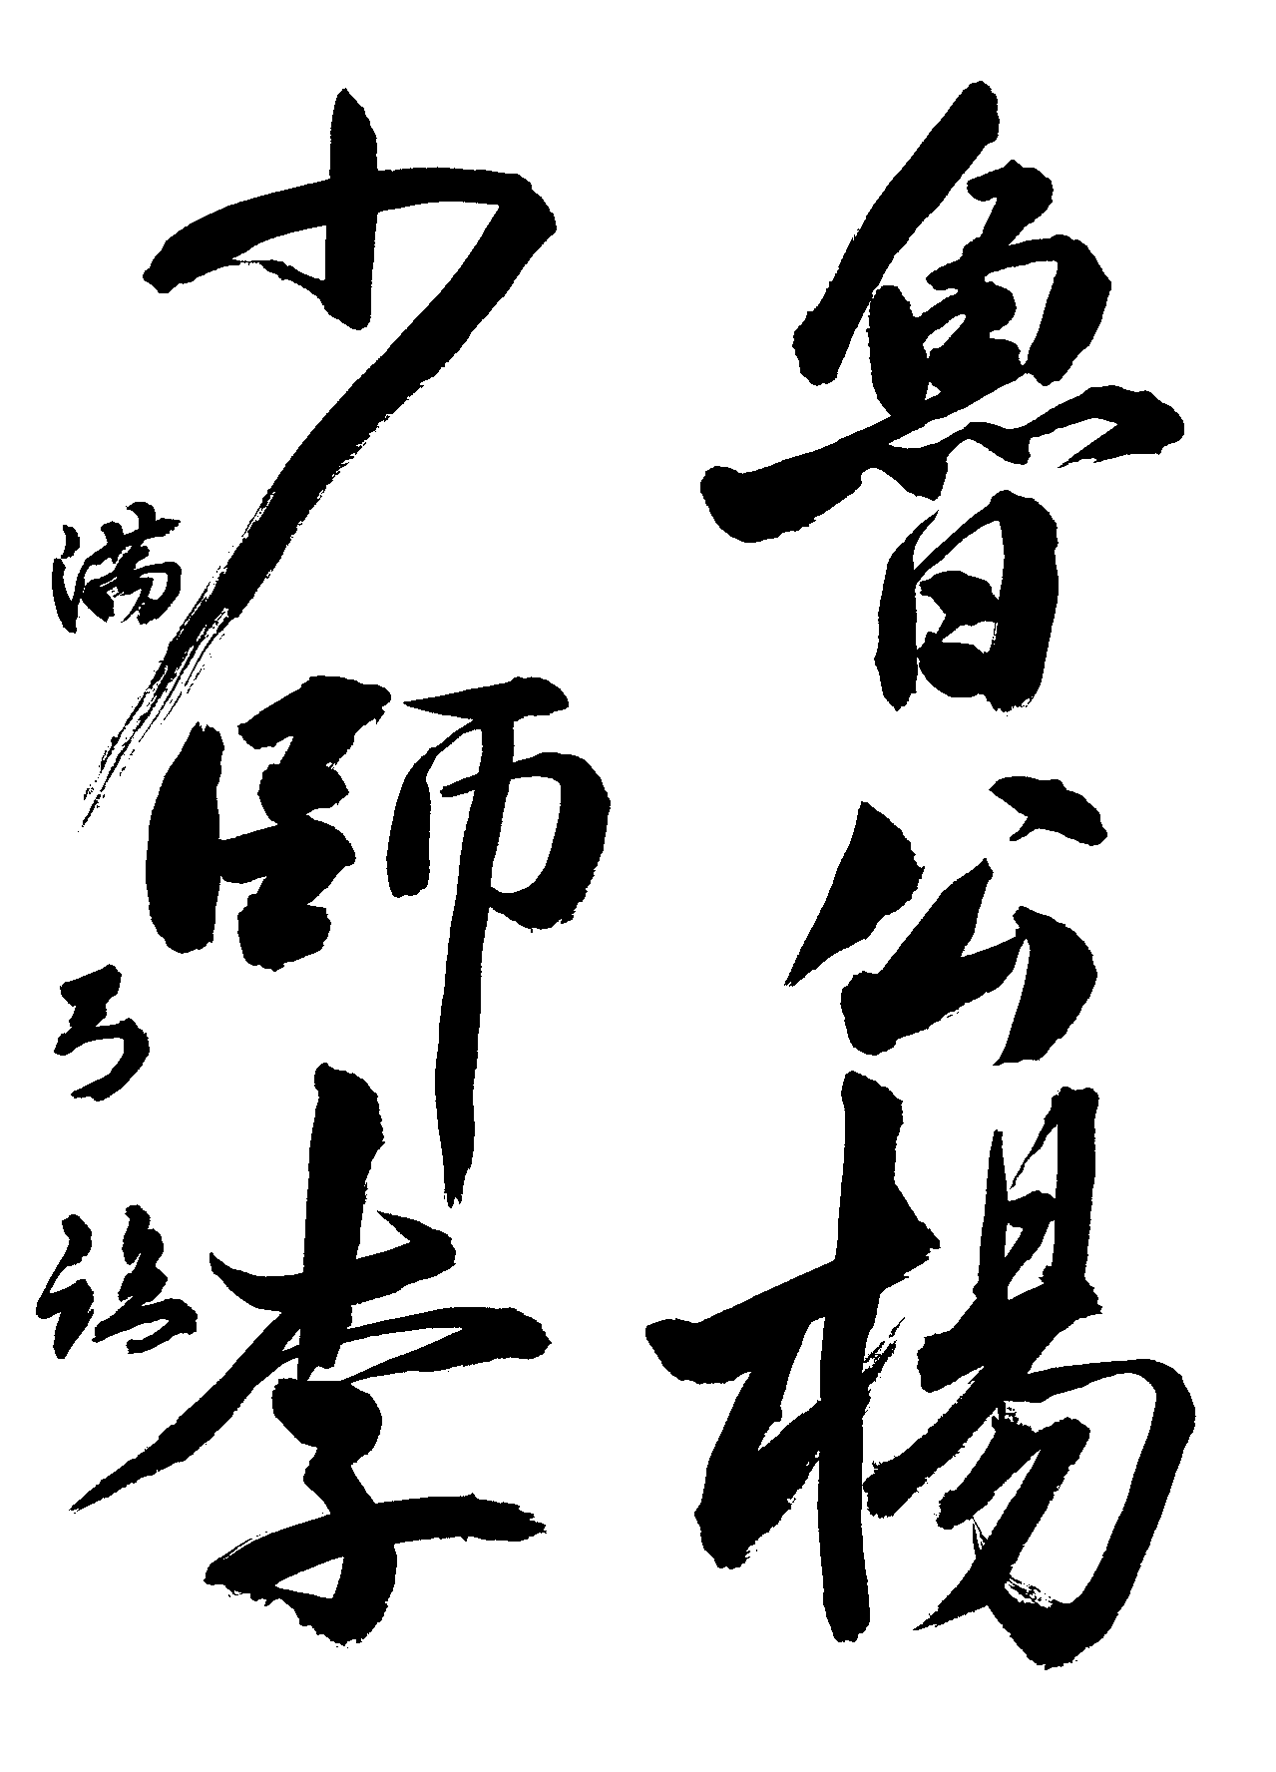 魯公楊
少師李
满弓